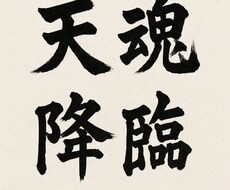 天魂
降臨